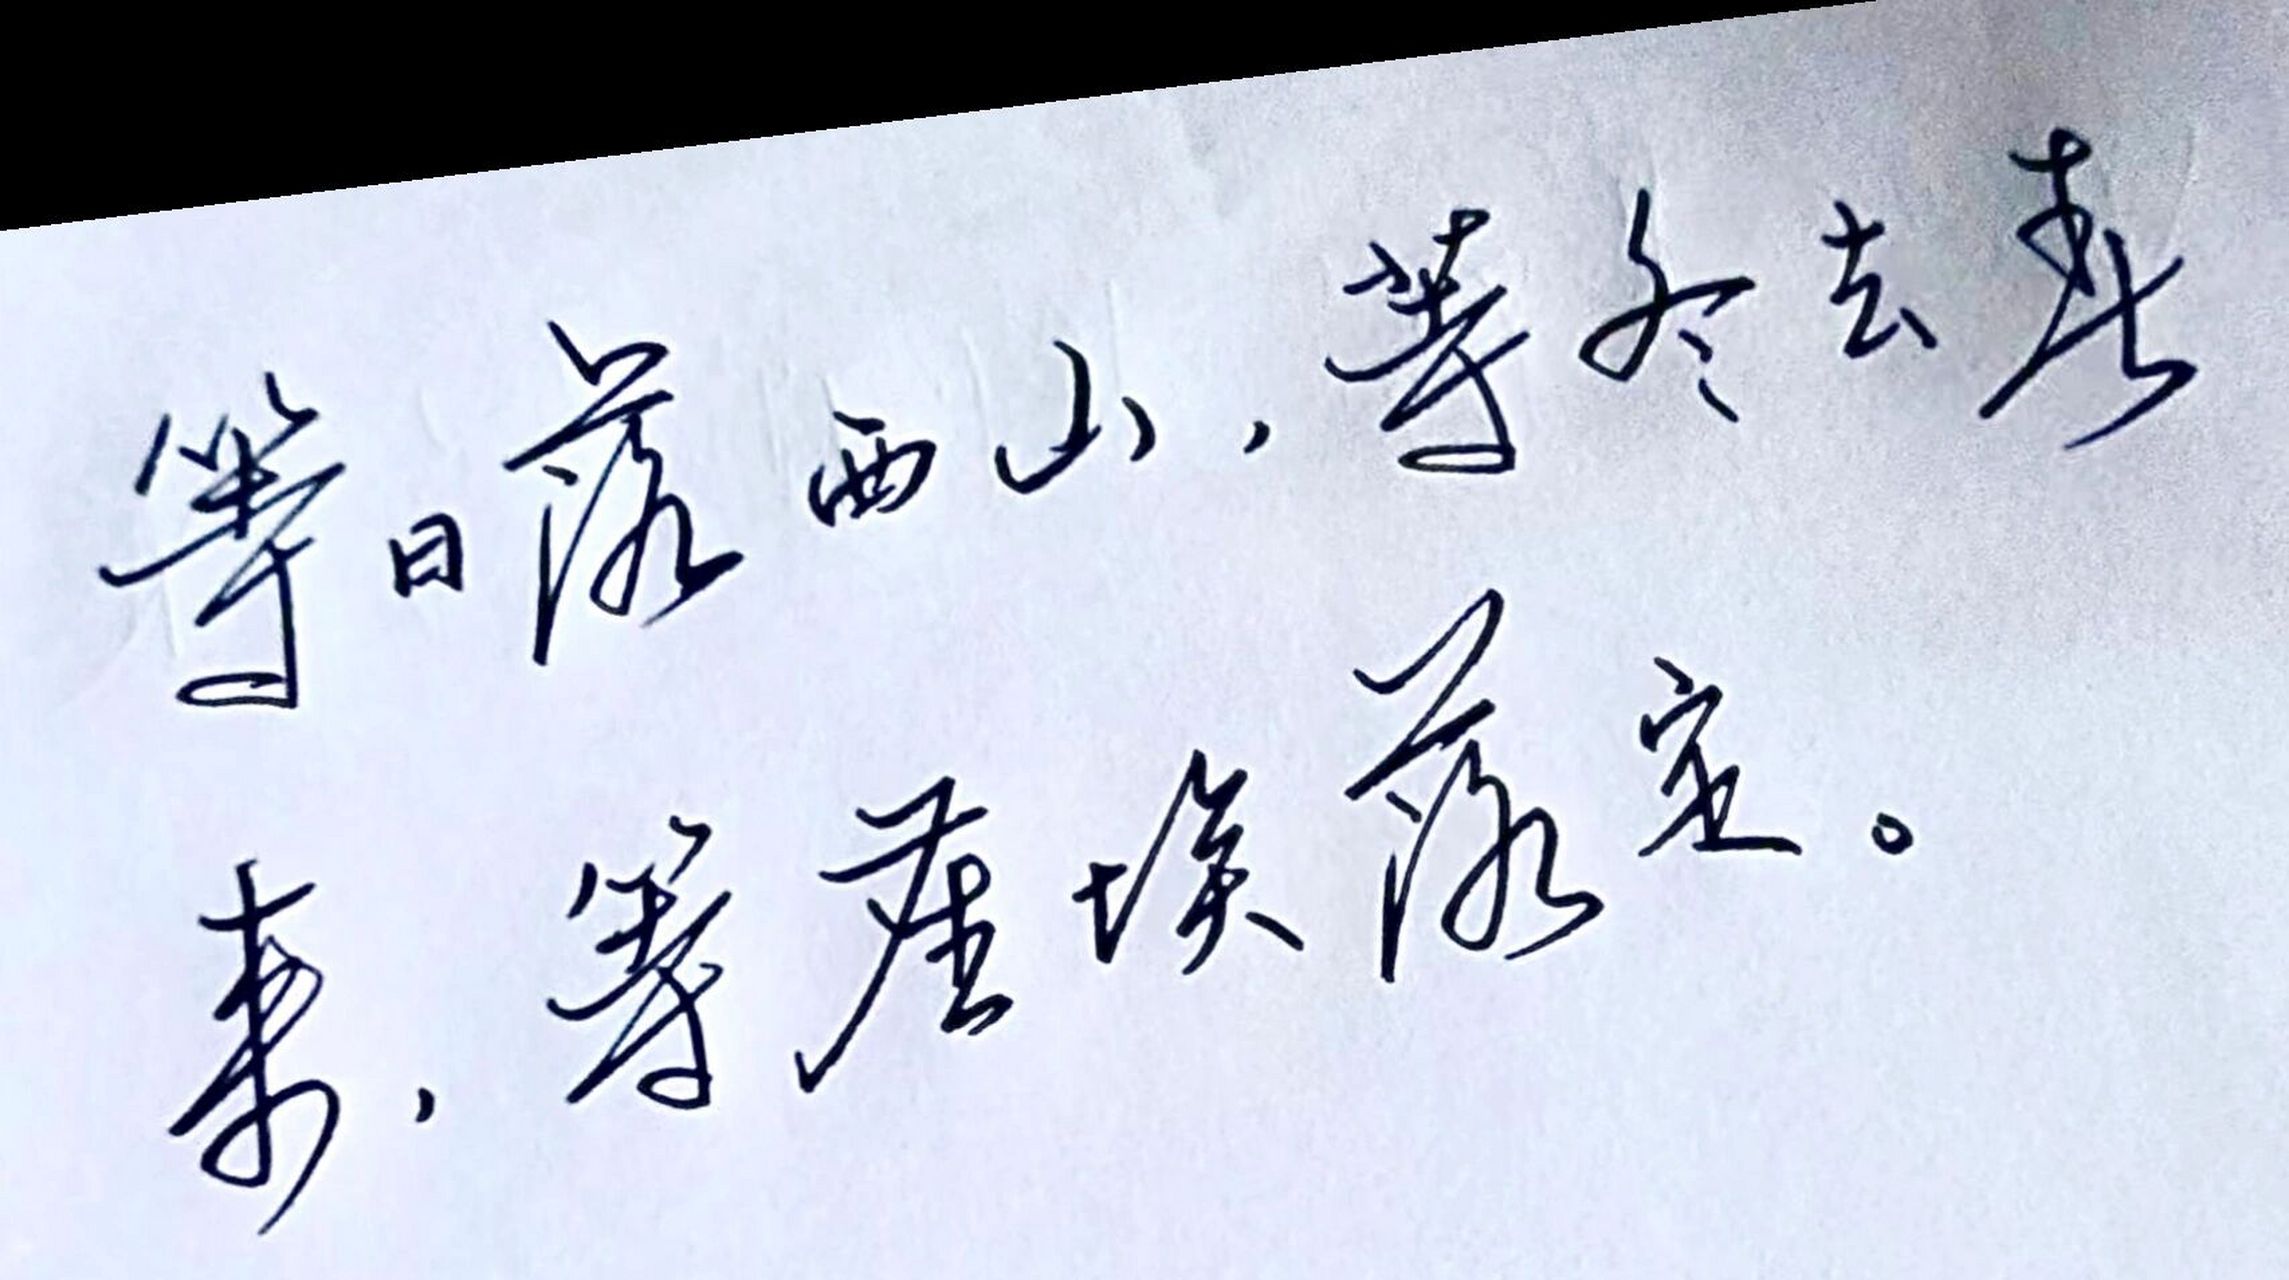 等日落西山,等冬去春
来,等尘埃落定。